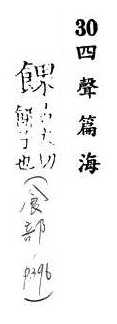 30四聲篇海
餜古火切
子也
(食部,P396)